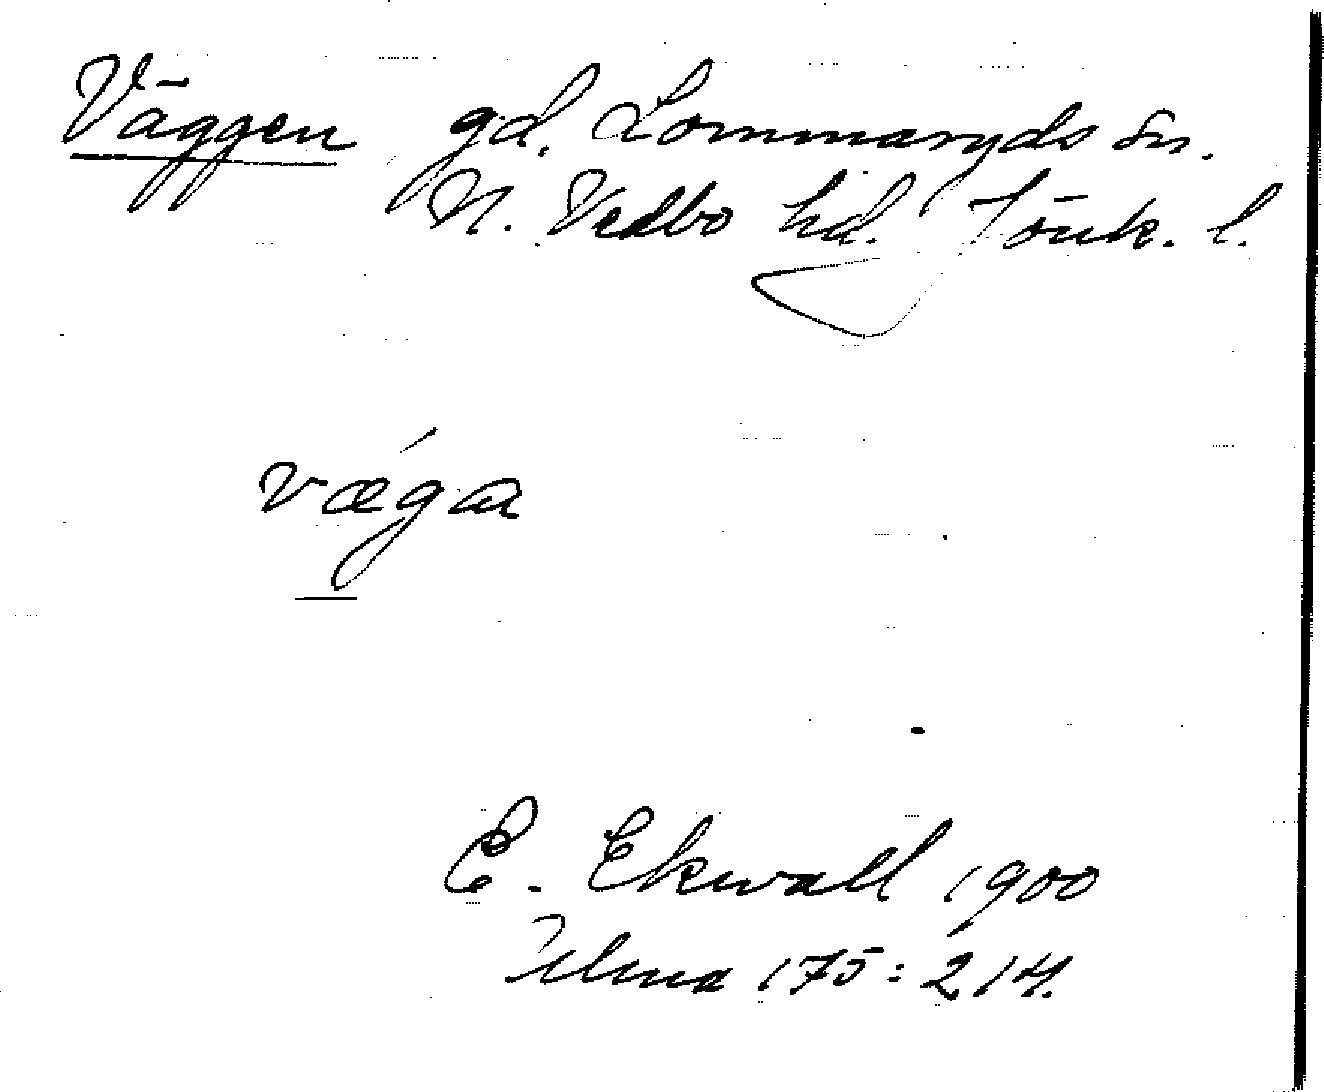 Väggen gd. Lommaryds sn.
N. Vedbo hd. Jönk. l.
vǽga
E. Ekwall 1900
175:214.